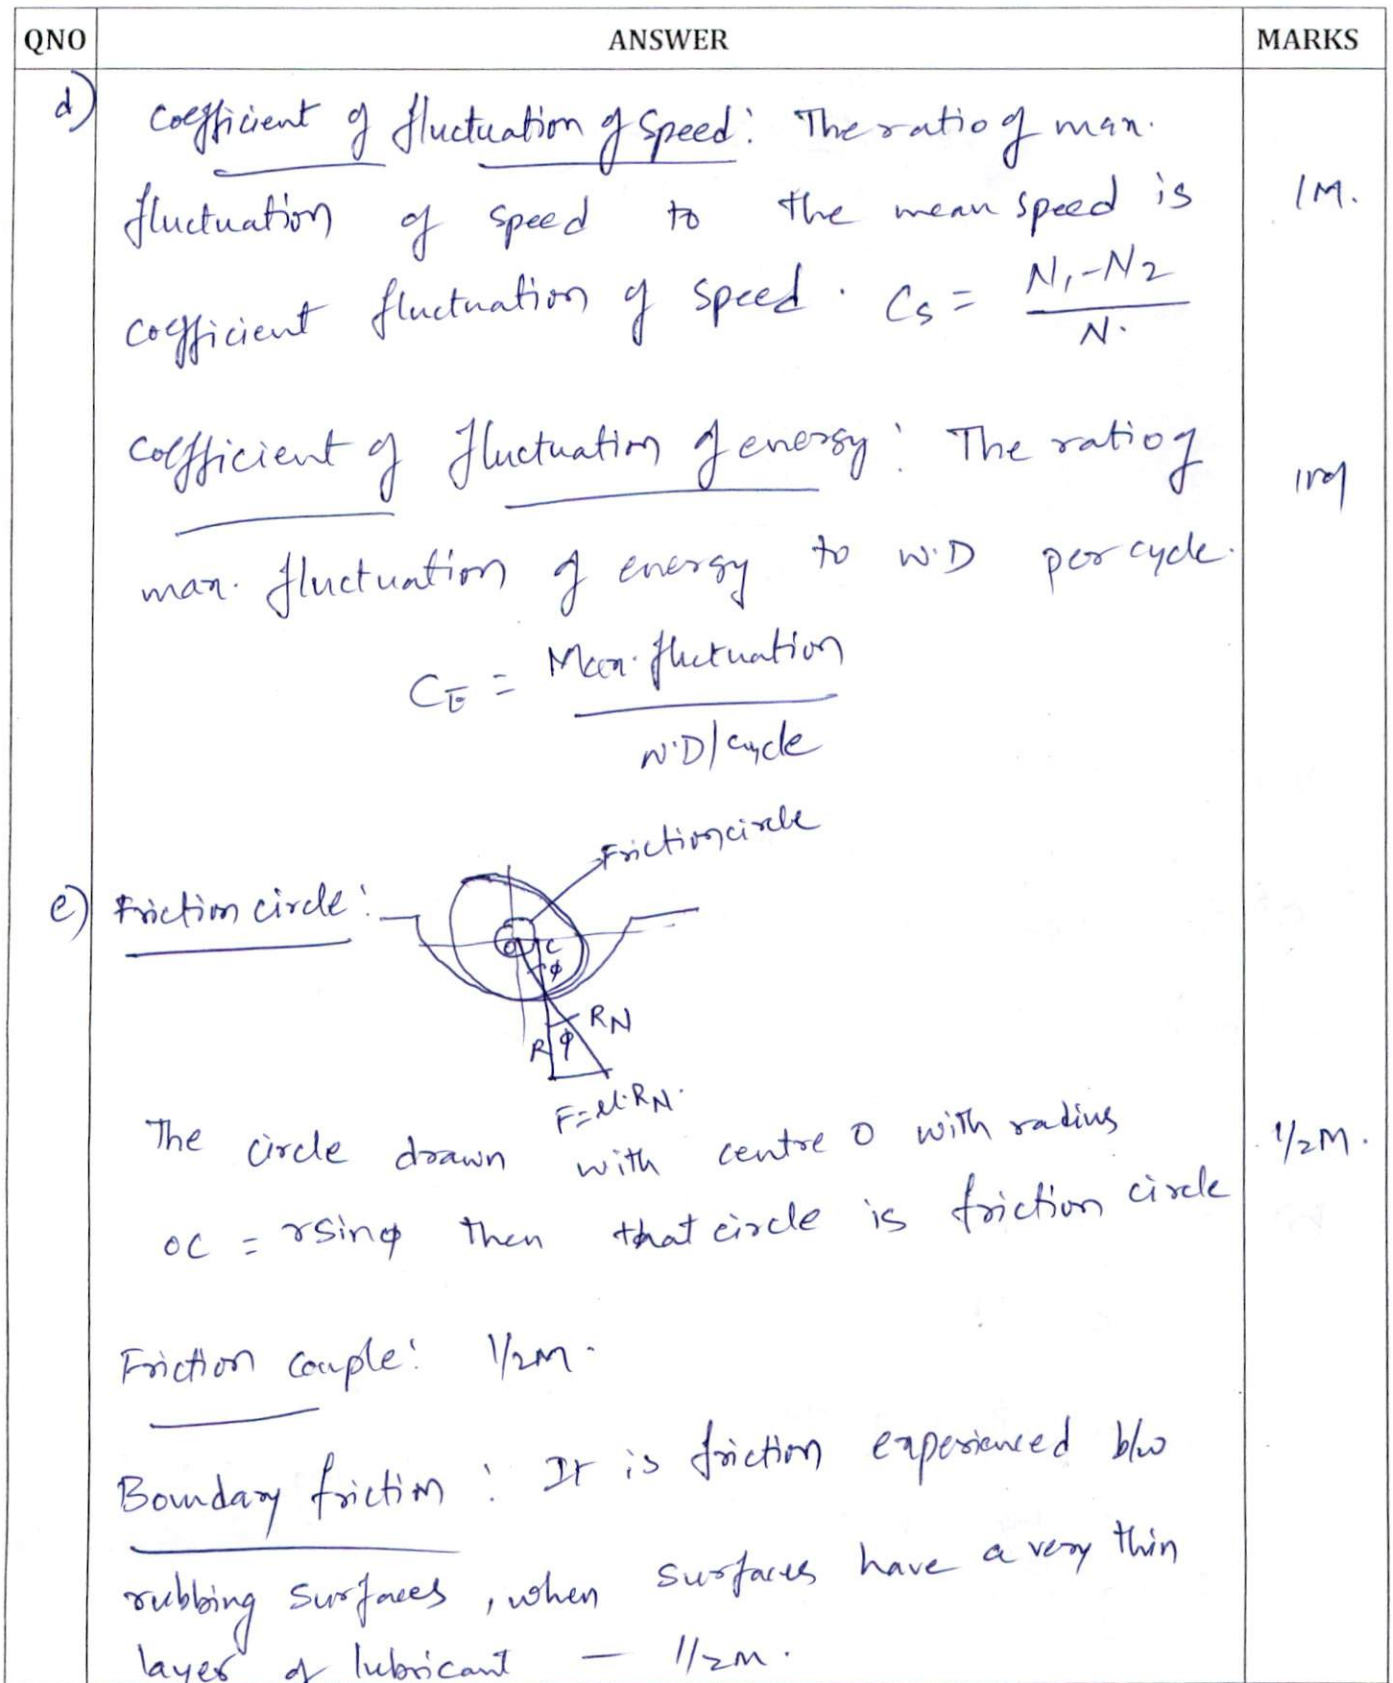 QNO ANSWER MARKS
d) Coefficient of fluctuation of speed: The ratio of max.
fluctuation of speed to the mean speed is 1M.
coefficient fluctuation of speed. Cs = N1-N2
N.
Coefficient of fluctuation of energy: The ratio of 1M
max. fluctuation of energy to W.D per cycle.
CE = Max. fluctuation
W.D/cycle
Friction circle
e) Friction circle:
O C
φ
RN
R φ
F=μ.RN.
The circle drawn with centre O with radius 1/2M.
OC = rsinφ then that circle is friction circle
Friction couple: 1/2M.
Boundary friction: It is friction experienced b/w
rubbing surfaces, when surfaces have a very thin
layer of lubricant — 1/2M.